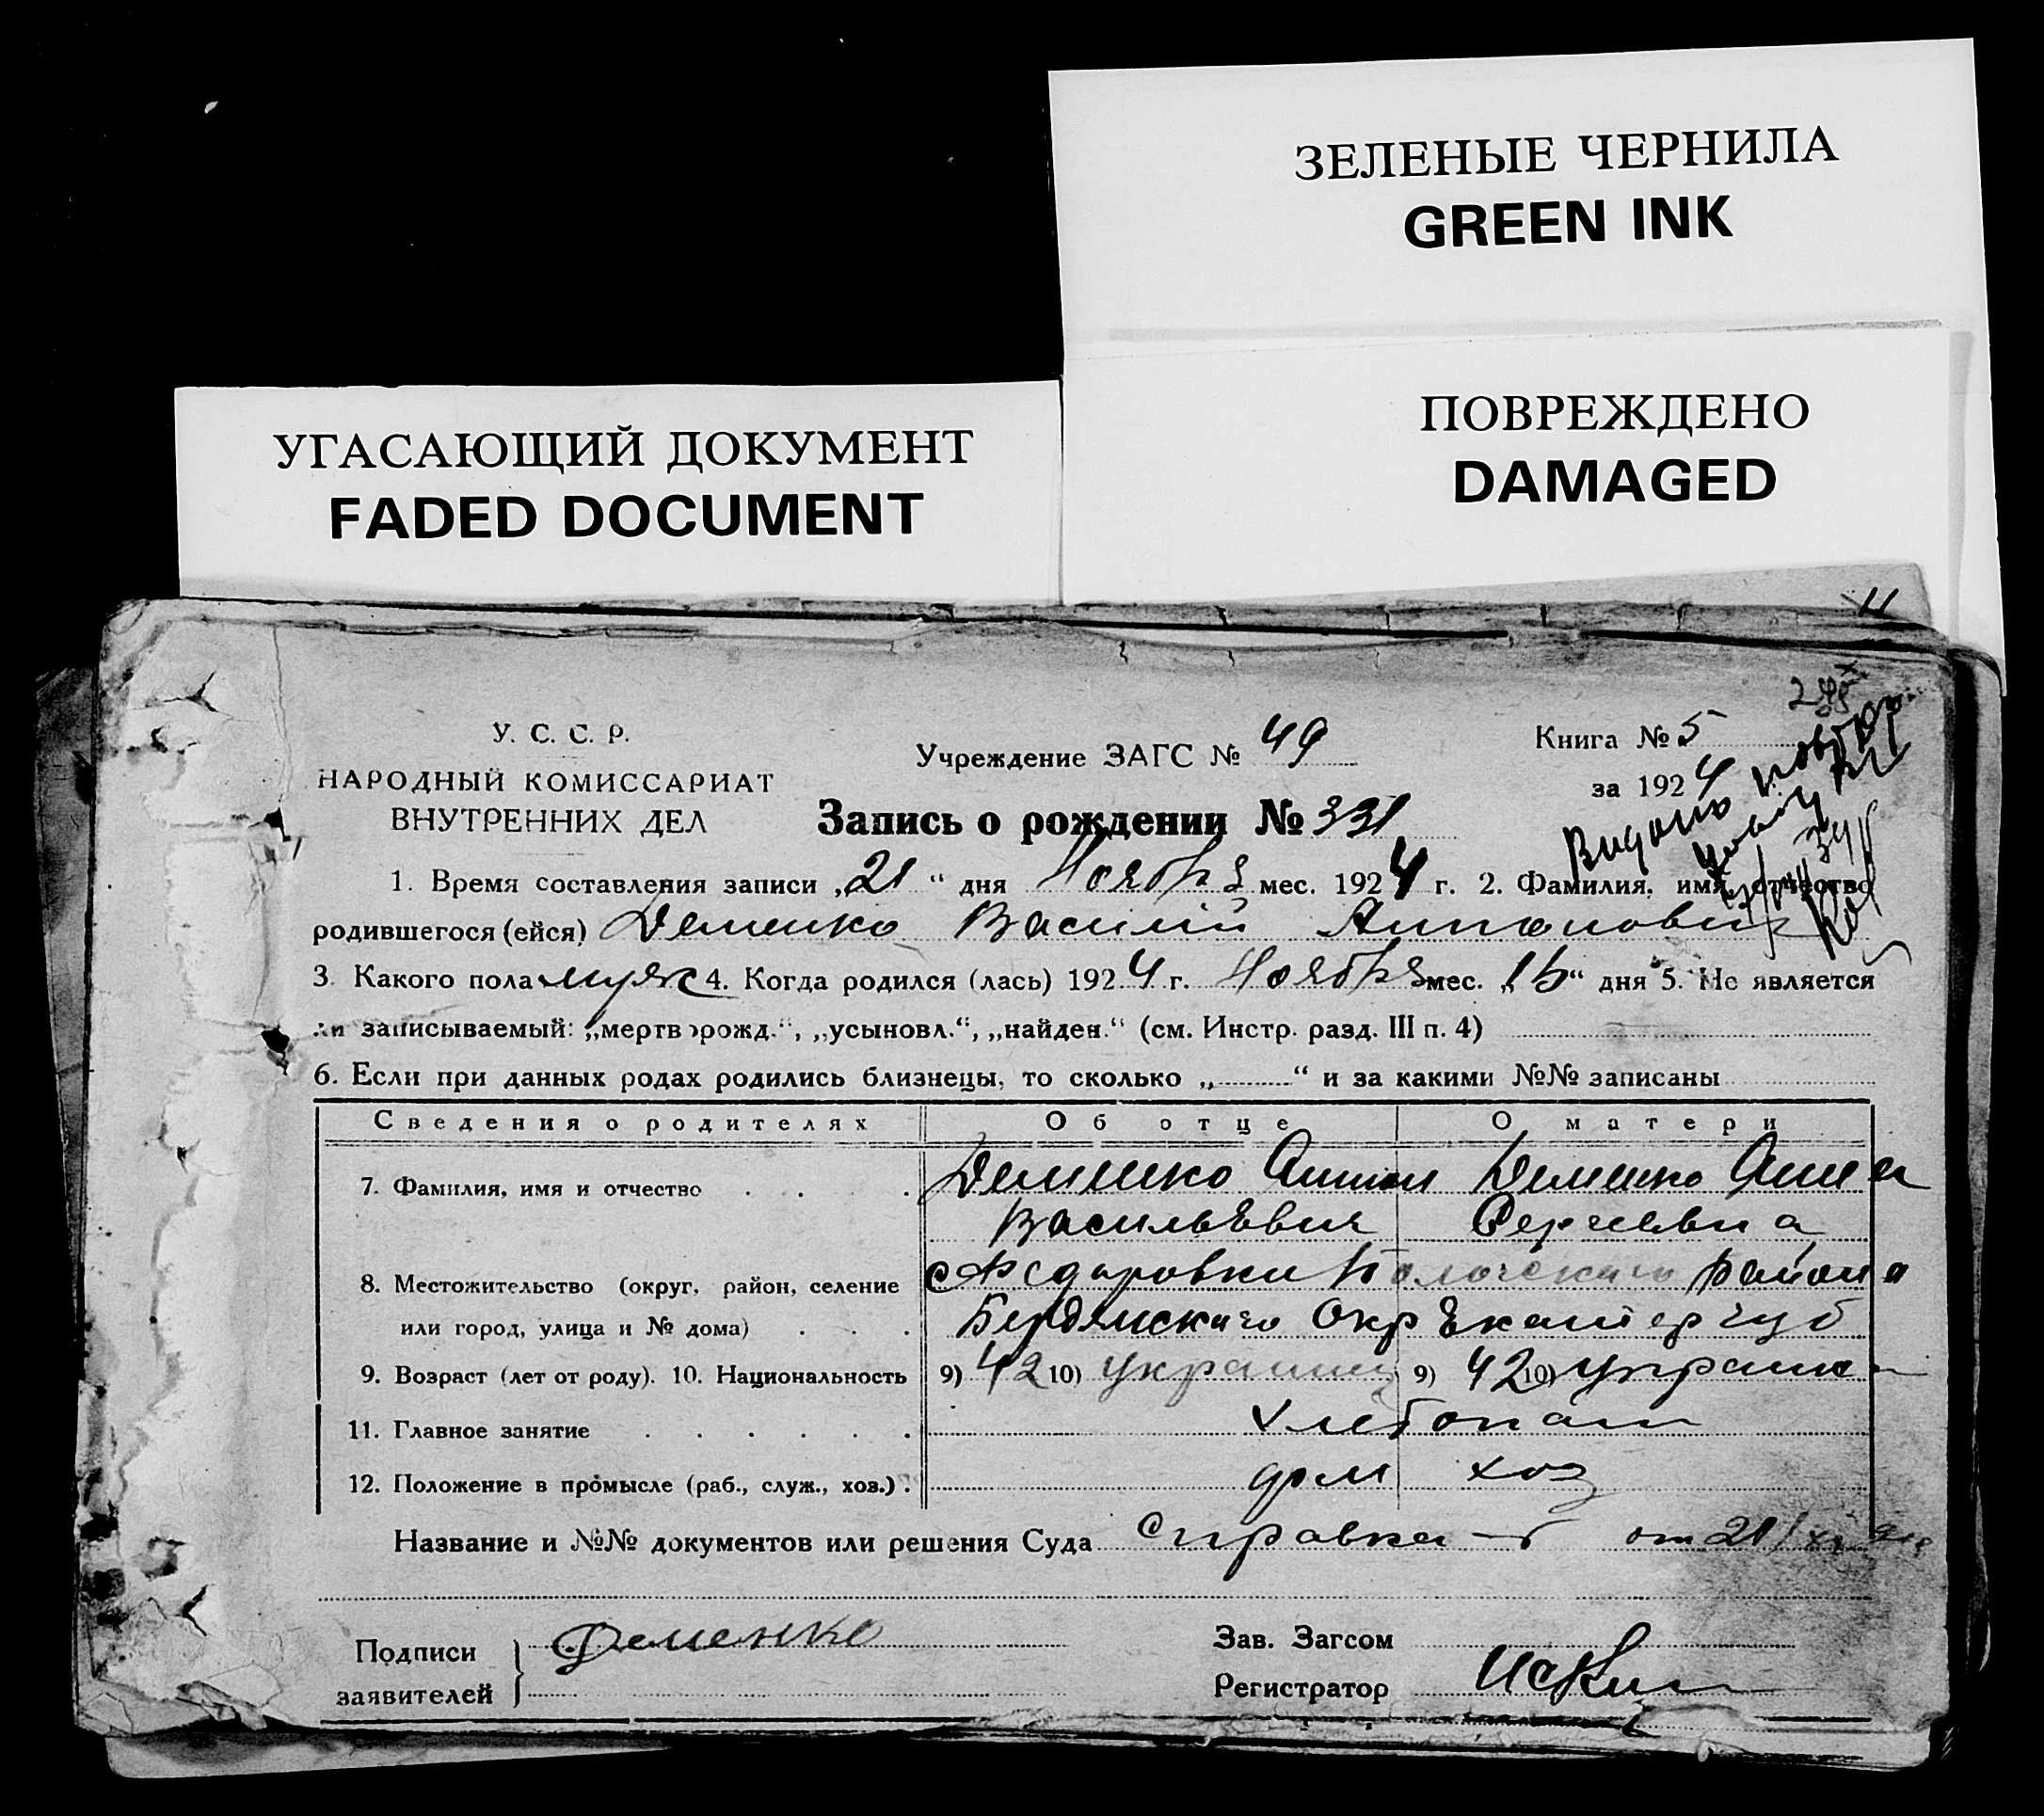 ЗЕЛЕНЫЕ ЧЕРНИЛА
GREEN INK
ПОВРЕЖДЕНО
DAMAGED
УГАСАЮЩИЙ ДОКУМЕНТ
FADED DOCUMENT
У. С. С. Р.
НАРОДНЫЙ КОМИССАРИАТ
ВНУТРЕННИХ ДЕЛ
Учреждение ЗАГС № 49
Книга № 5
за 1924
Запись о рождении № 331
1. Время составления записи „21“ дня Ноября мес. 1924 г. 2. Фамилия, имя, отчество
родившегося (ейся) Деменко Василий Антонович
3. Какого пола муж 4. Когда родился (лась) 1924 г. Ноября мес. „15“ дня 5. Не является
ли записываемый: „мертворожд.“, „усыновл.“, „найден.“ (см. Инстр. разд. III п. 4)
6. Если при данных родах родились близнецы, то сколько „ “ и за какими №№ записаны
Сведения о родителях Об отце О матери
7. Фамилия, имя и отчество Деменко Антон Деменко Анна
Васильевич Сергеевна
8. Местожительство (округ, район, селение с Федоровки района
или город, улица и № дома) Бердянского Окр Екатер губ
9. Возраст (лет от роду). 10. Национальность 9) 42 10) украинец 9) 42 10) украинка
11. Главное занятие хлебопаш
12. Положение в промысле (раб., служ., хоз.) дом хоз
Название и №№ документов или решения Суда Справка от 21/XI
Подписи заявителей Деменко
Зав. Загсом
Регистратор